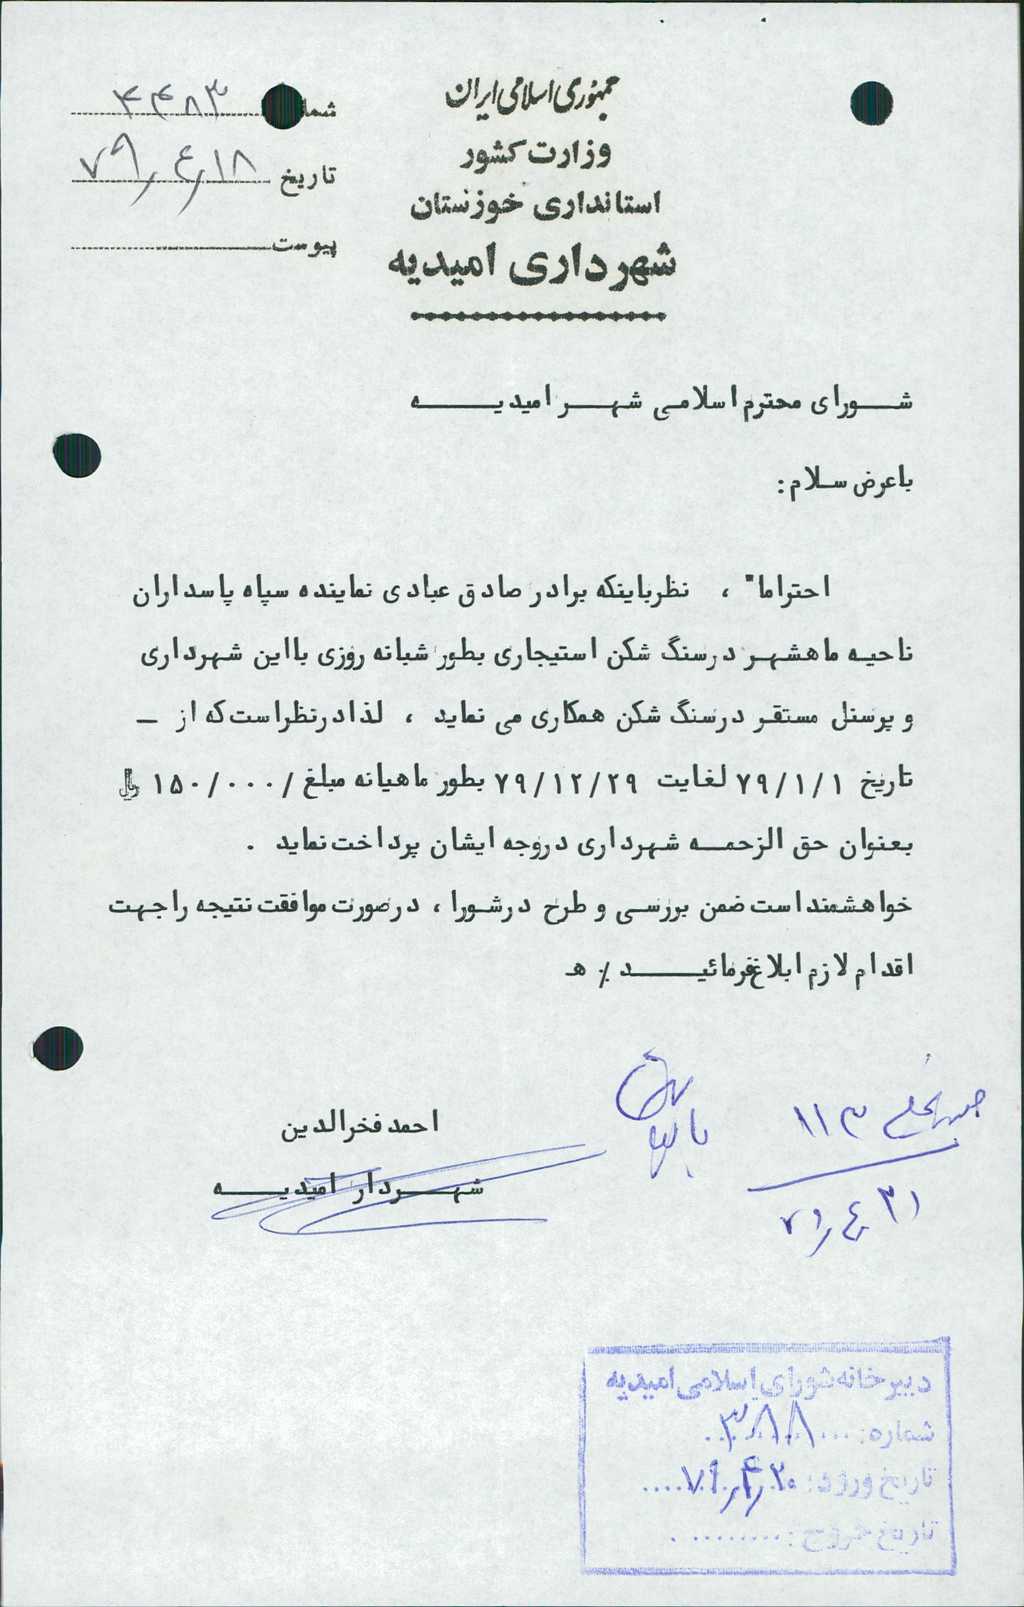 جمهوری اسلامی ایران
وزارت کشور
استانداری خوزستان
شهرداری امیدیه
شماره ۴۴۸۳
تاریخ ۷۹/۴/۱۸
پیوست
شورای محترم اسلامی شهر امیدیه
باعرض سلام :
احتراما" ، نظرباینکه برادر صادق عبادی نماینده سپاه پاسداران
ناحیه ماهشهر درسنگ شکن استیجاری بطور شبانه روزی بااین شهرداری
و پرسنل مستقر درسنگ شکن همکاری می نماید ، لذادرنظراست که از _
تاریخ ۷۹/۱/۱ لغایت ۷۹/۱۲/۲۹ بطور ماهیانه مبلغ /۱۵۰/۰۰۰ ریال
بعنوان حق الزحمه شهرداری دروجه ایشان پرداخت نماید .
خواهشمنداست ضمن بررسی و طرح درشورا ، درصورت موافقت نتیجه راجهت
اقدام لازم ابلاغ فرمائید ٪ ھ
احمد فخرالدین
شهردار امیدیه
۱۱۳
۷۹/۴/۳۱
دبیرخانه شورای اسلامی امیدیه
شماره: ۳۸۸
تاریخ ورود: ۷۹/۴/۲۰
تاریخ خروج: